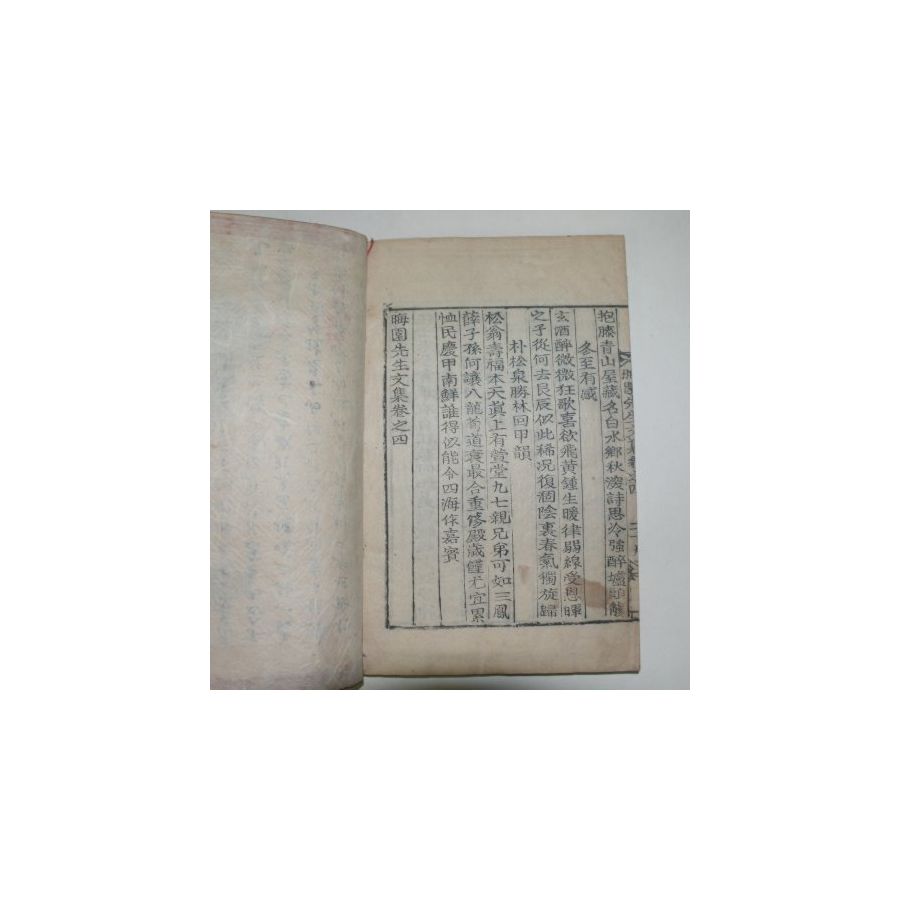 抱膝青山屋藏名白水鄉秋深詩思冷強醉墟
冬至有感
玄酒醉微微狂歌喜欲飛黃鍾生暖律弱線受恩暉
之子從何去良辰似此稀况復涸陰裏春氣獨旋歸
朴松泉勝林回甲韻
松翁壽福本天眞上有萱堂九七親兄弟可如三鳳
薛子孫何讓八龍荀道衰最合重修殿歲饉尤宜累
恤民慶甲南鮮誰得似能令四海作嘉賓
晦園先生文集卷之四